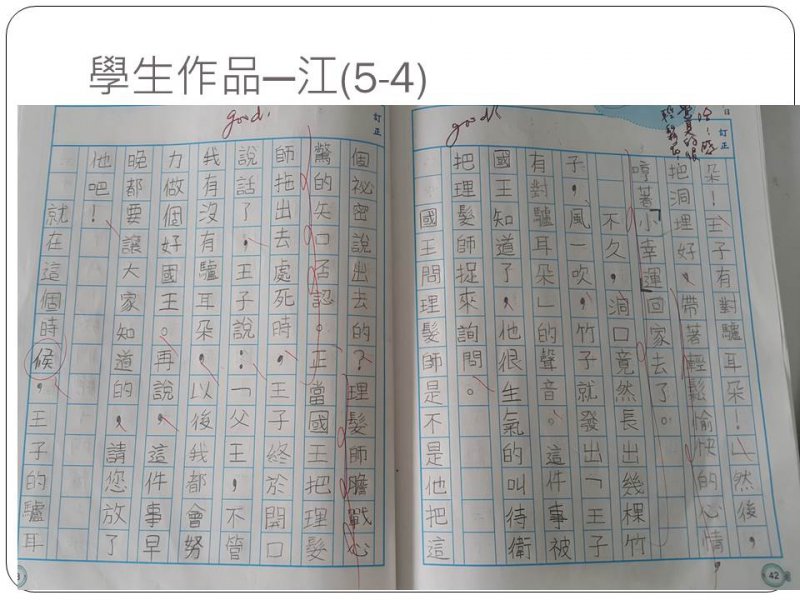 學生作品—江(5-4)
訂正
good!
朵！王子有對驢耳朵！」然後，
把洞埋好，帶著輕鬆愉快的心情，
哼著「小幸運」回家去了。
不久，洞口竟然長出幾棵竹
子，風一吹，竹子就發出「王子
有對驢耳朵」的聲音。這件事被
國王知道了，他很生氣的叫待衛
把理髮師捉來詢問。
國王問理髮師是不是他把這
42
訂正
good!
個祕密說出去的？理髮師膽戰心
驚的矢口否認。正當國王把理髮
師拖出去處死時，王子終於開口
說話了，王子說：「父王，不管
我有沒有驢耳朵，以後我都會努
力做個好國王。再說，這件事早
晚都要讓大家知道的，請您放了
他吧！
就在這個時候，王子的驢耳